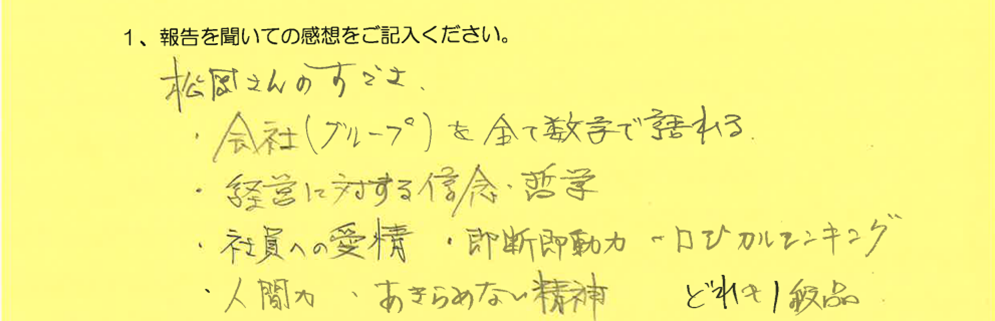 1、報告を聞いての感想をご記入ください。
松岡さんのすごさ、
・会社(グループ)を全て数字で語れる
・経営に対する信念・哲学
・社員への愛情 ・即断即動力 ーロジカルシンキング
・人間力 ・あきらめない精神 どれも1級品